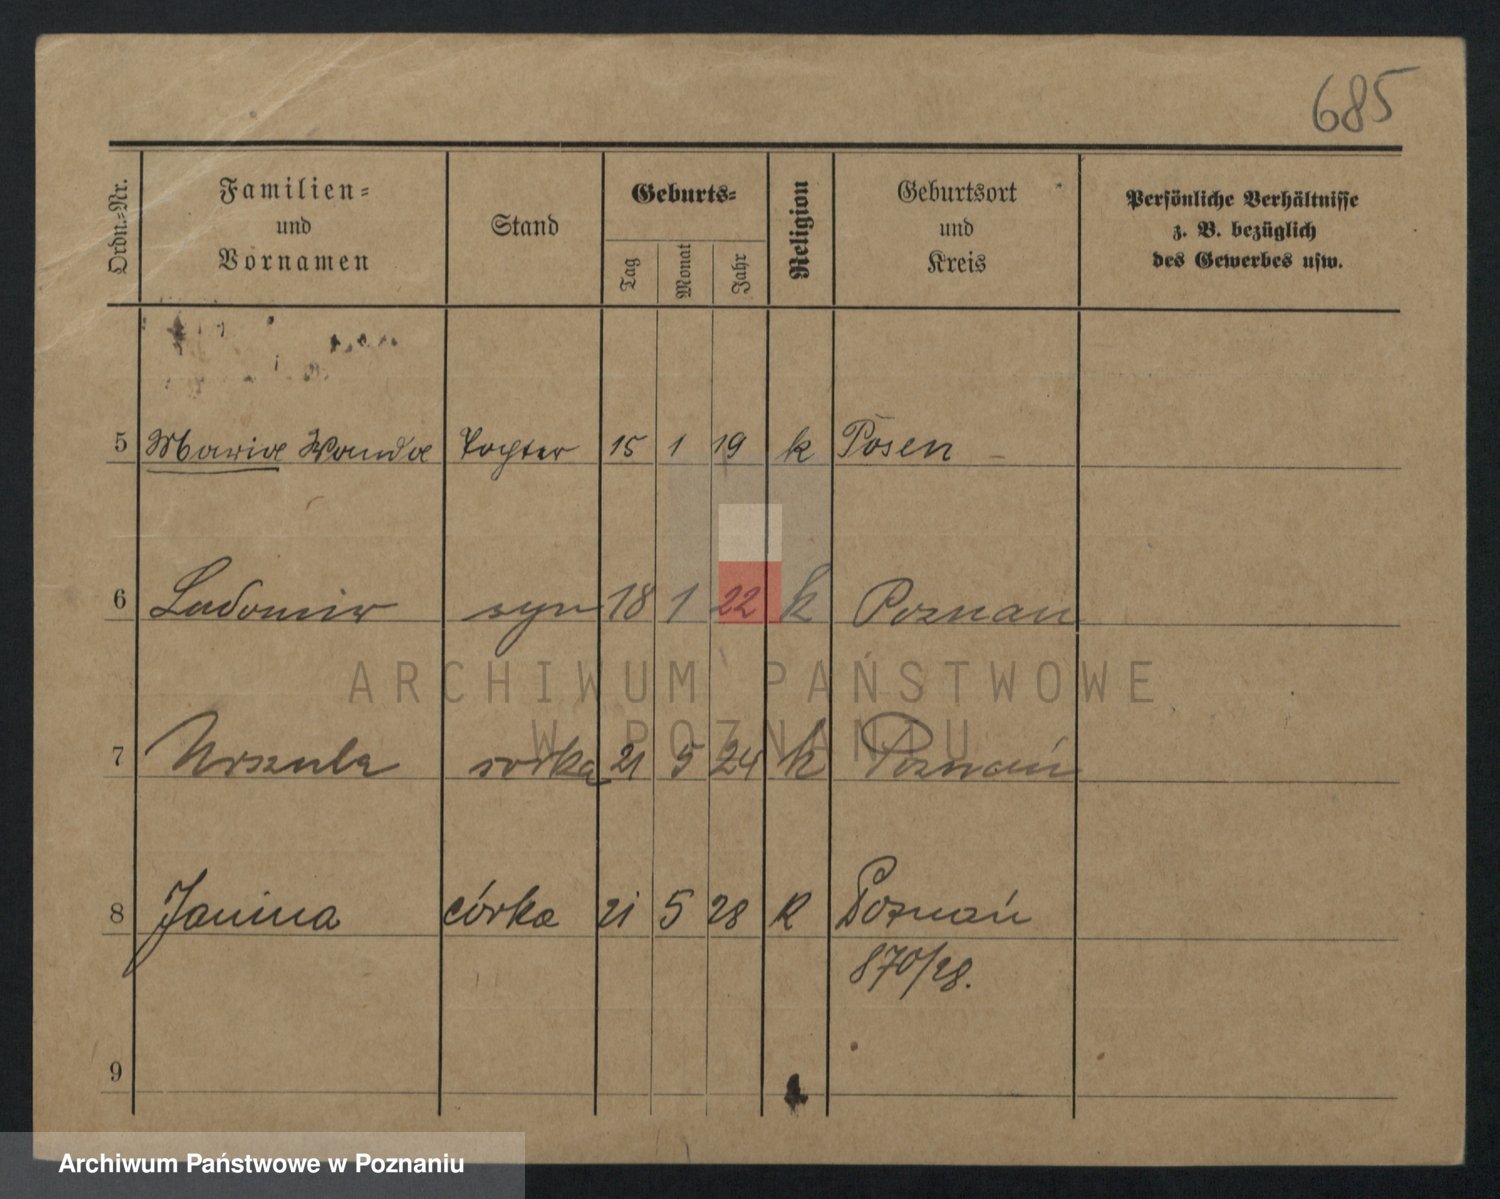 685
Ordn.-Nr.
Familien-
und
Vornamen
Stand
Geburts-
Tag
Monat
Jahr
Religion
Geburtsort
und
Kreis
Persönliche Verhältnisse
z. B. bezüglich
des Gewerbes usw.
5 Maria Wanda Tochter 15 1 19 k Posen
6 Ladomir syn 18 1 22 k Poznan
ARCHIWUM PAŃSTWOWE
W POZNANIU
7 Urszula córka 21 5 24 k Poznań
8 Janina córka 21 5 28 k Poznań
870/28.
9
Archiwum Państwowe w Poznaniu